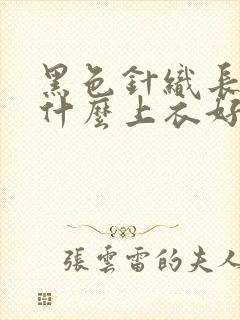 黑色針織長
什麼上衣好
張雲雷的夫人